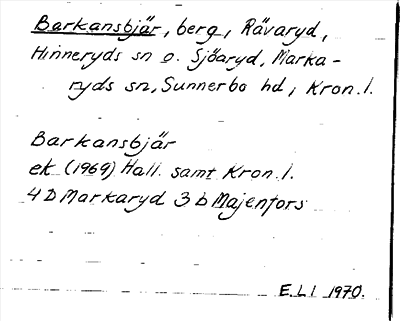 Barkansbjär, berg, Rävaryd,
Hinneryds sn o. Sjöaryd, Marka-
ryds sn, Sunnerbo hd, Kron.l.
Barkansbjär
ek (1969) Hall. samt Kron.l.
4D Markaryd 3b Majenfors
E.L l 1970.